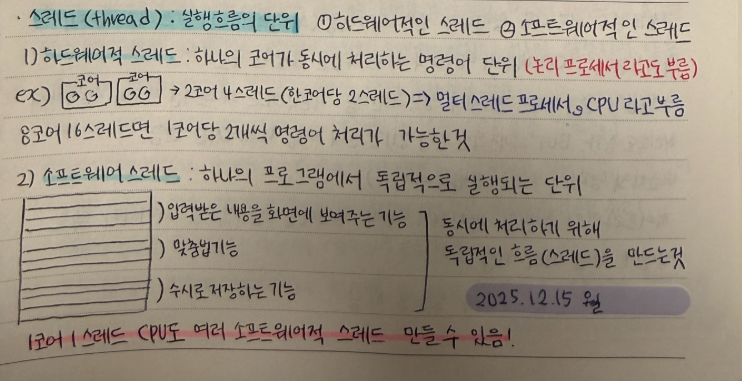 · 스레드(thread) : 실행흐름의 단위 ①하드웨어적인 스레드 ②소프트웨어적인 스레드
1) 하드웨어적 스레드 : 하나의 코어가 동시에 처리하는 명령어 단위 (논리 프로세서라고도 부름)
ex) 코어 코어 → 2코어 4스레드(한코어당 2스레드) => 멀티 스레드 프로세서, CPU 라고 부름
8코어 16스레드면 1코어당 2개씩 명령어 처리가 가능한것
2) 소프트웨어 스레드 : 하나의 프로그램에서 독립적으로 실행되는 단위
) 입력받은 내용을 화면에 보여주는 기능
) 맞춤법기능
) 수시로 저장하는 기능
동시에 처리하기 위해
독립적인 흐름(스레드)을 만드는것
2025.12.15 월
1코어 1스레드 CPU도 여러 소프트웨어적 스레드 만들 수 있음!